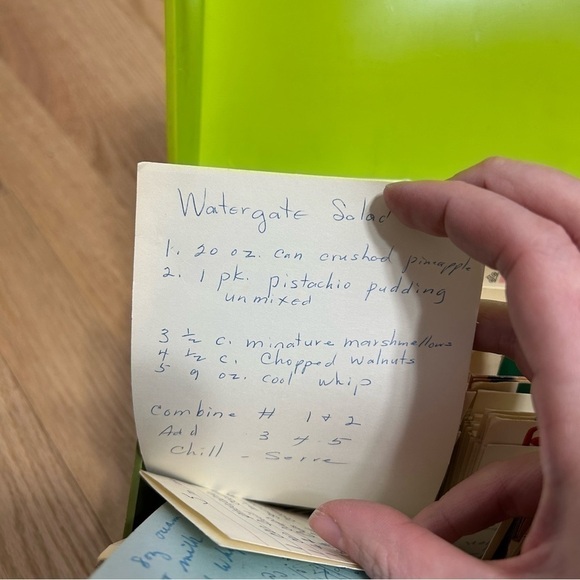 Watergate Salad
1. 20 oz. can crushed pineapple
2. 1 pk. pistachio pudding
unmixed
3 1/2 c. minature marshmellows
4 1/2 c. Chopped Walnuts
5 9 oz. cool whip
Combine # 1 + 2
Add 3 4 5
Chill - Serve